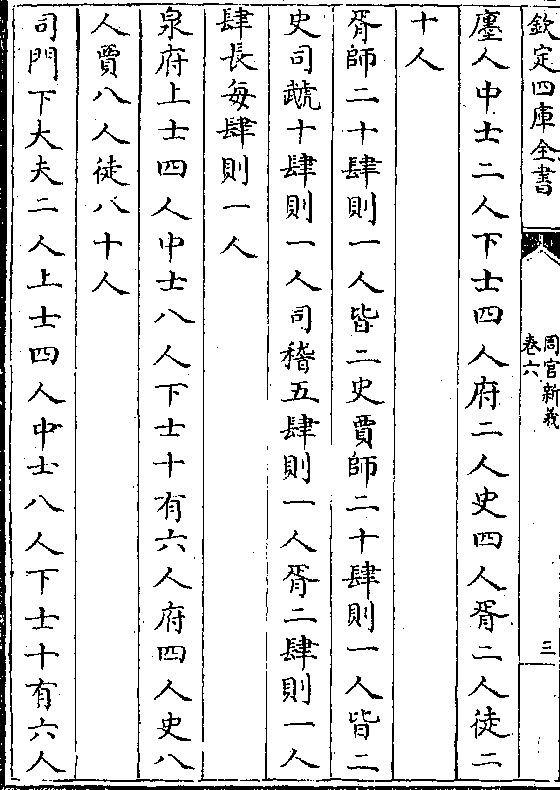 欽定四庫全書
周官新義
卷六
三
廛人中士二人下士四人府二人史四人胥二人徒二
十人
胥師二十肆則一人皆二史賈師二十肆則一人皆二
史司虣十肆則一人司稽五肆則一人胥二肆則一人
肆長每肆則一人
泉府上士四人中士八人下士十有六人府四人史八
人賈八人徒八十人
司門下大夫二人上士四人中士八人下士十有六人